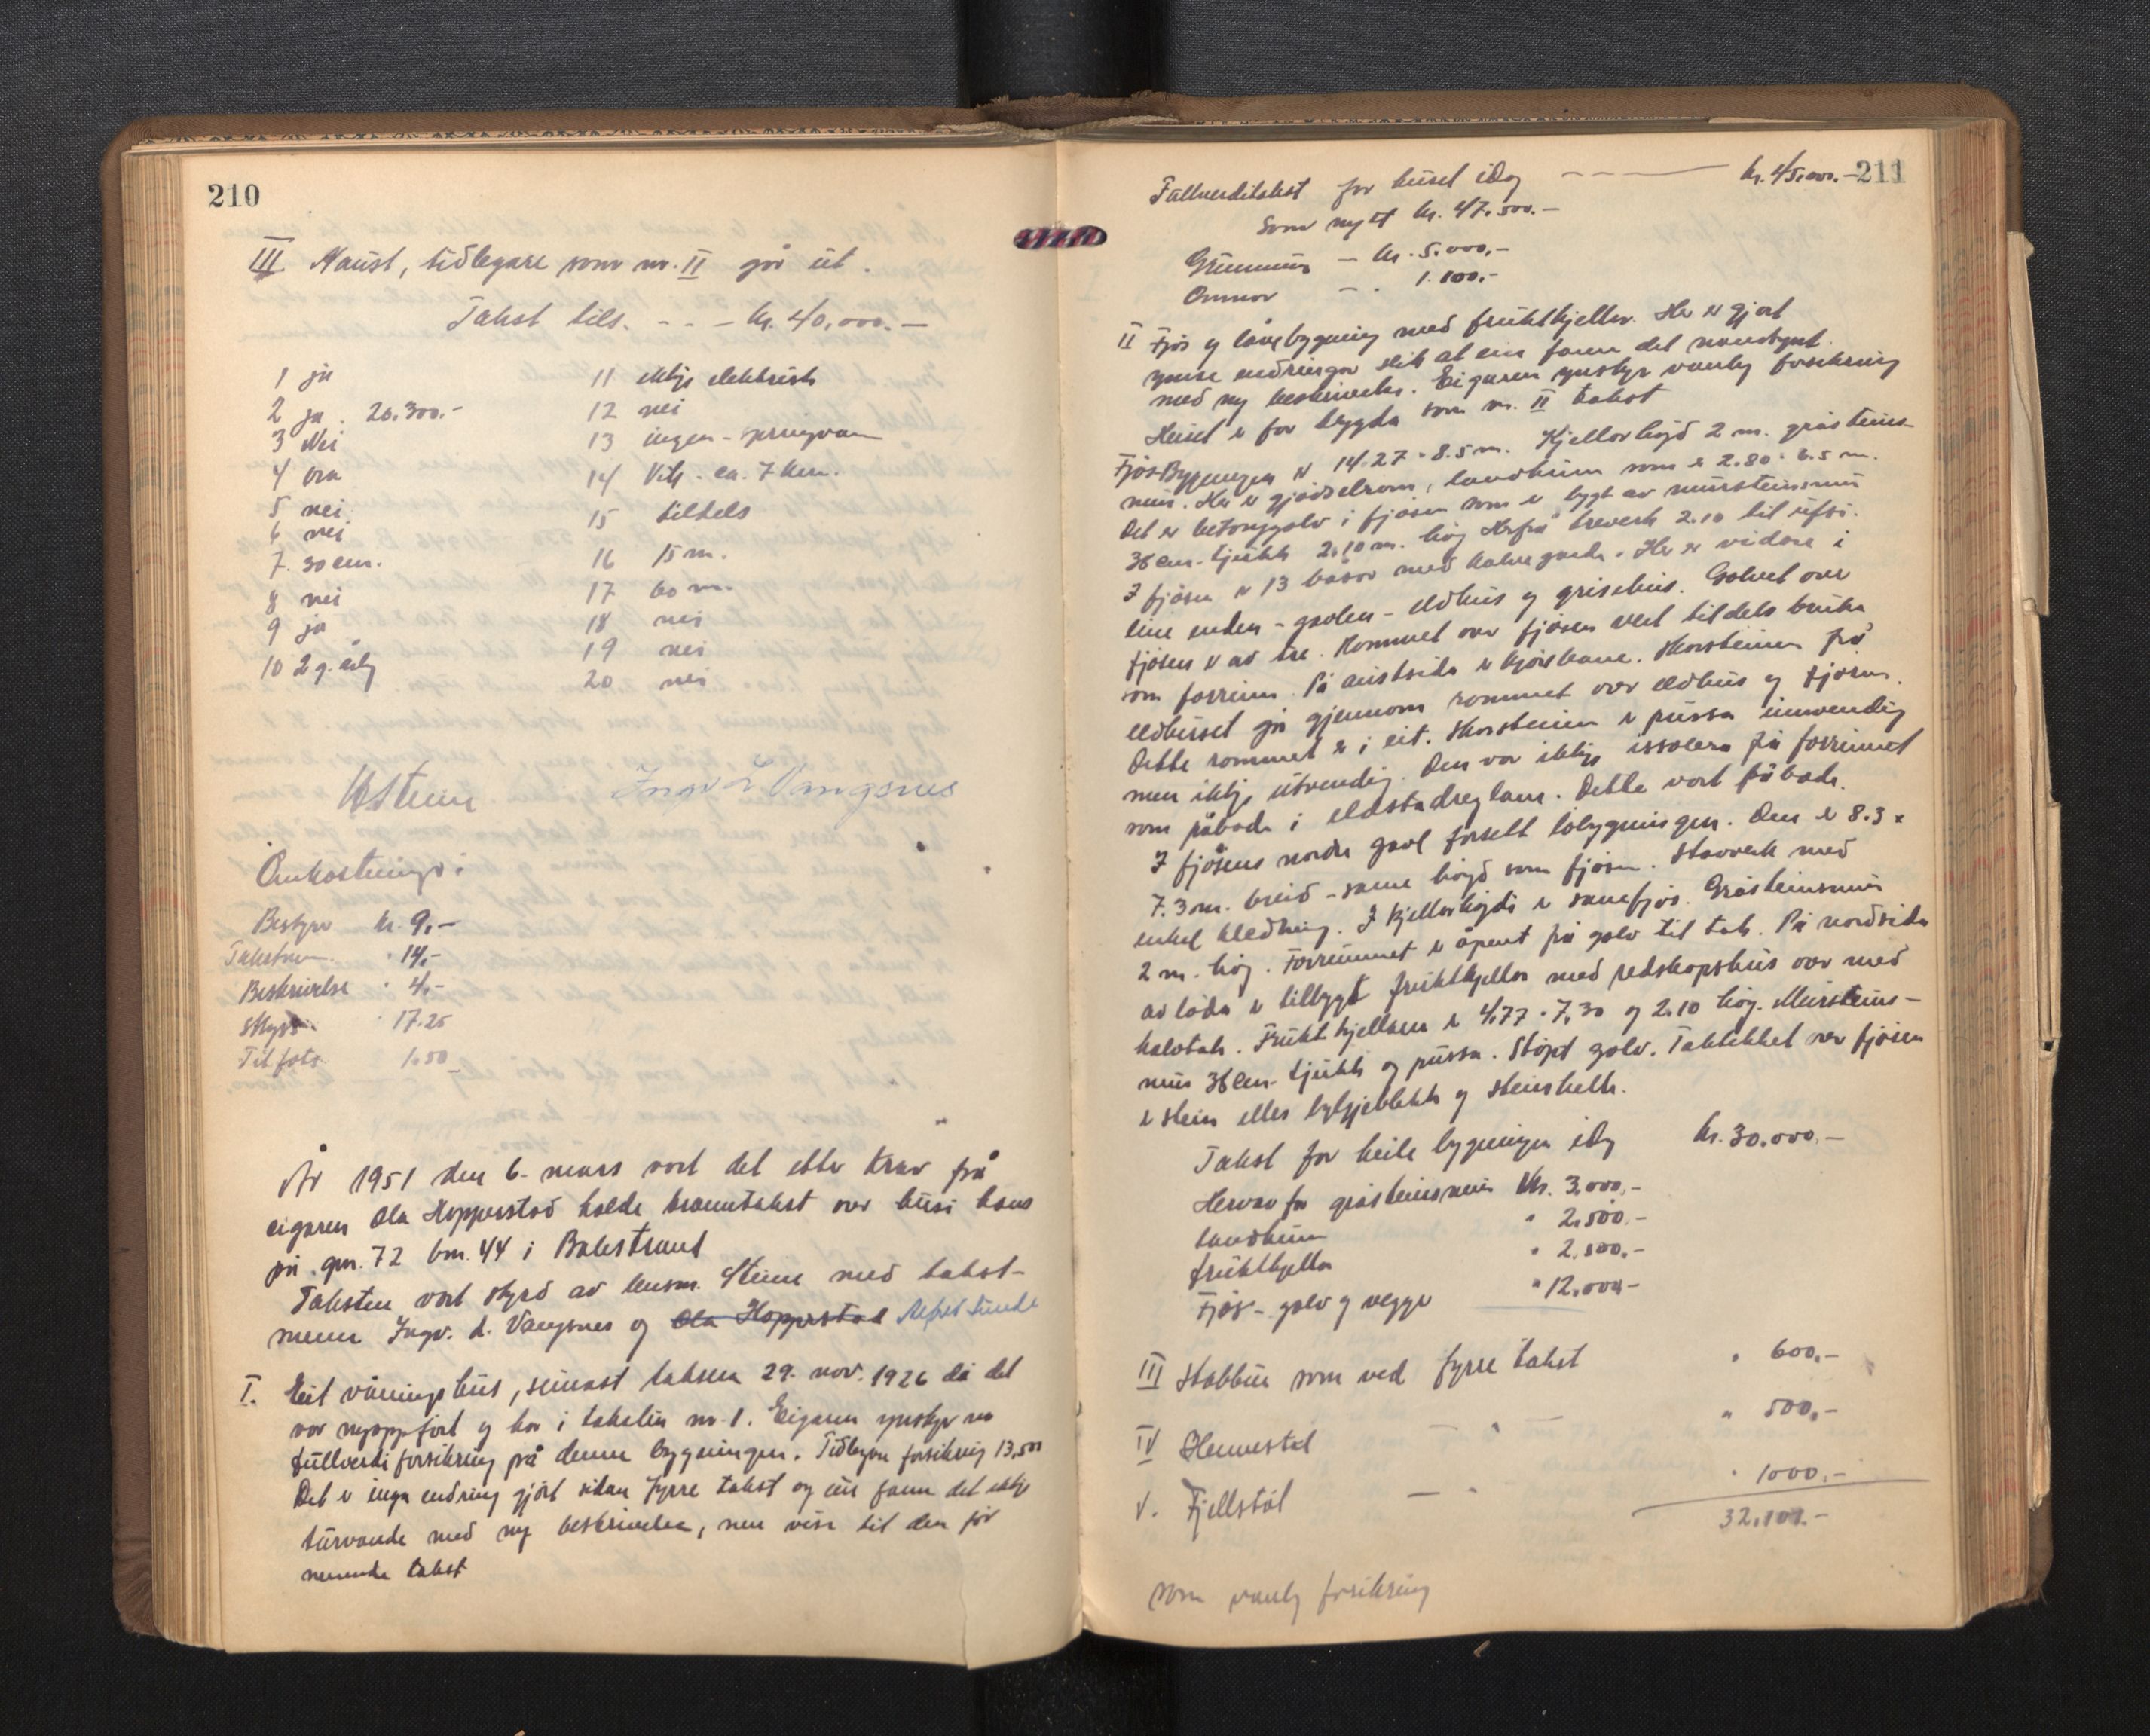 210
III. Naust, tidlegare som nr. II går ut.
Takst tils. - - - kr. 40.000.-
1 ja
2 ja . 20.300.-
3 Nei
4 bra
5 nei
6 nei
7. 30 cm.
8 nei
9 ja
10 2 g. årlg
11 ikkje elektrisk
12 nei
13 ingen - springvatn
14 Vik - ca. 7 km.
15 tildels
16 15 m.
17 60 m.
18 nei
19 nei
20 nei
Steine
Ingv L Vangsnes
Omkostninger:
Bestyr kr. 9.-
Takstm. " 14.-
Beskrivelse " 4.-
Skyss " 17.25
Til foto 1.50
År 1951 den 6. mars vart det etter krav frå
eigaren Ola Hopperstad halde branntakst over husi hans
på gnr. 72 bnr. 44 i Balestrand
Taksten vart styrd av lensm. Steine med takst-
menn Ingv. L. Vangsnes og Ola Hopperstad
I. Eit våningshus, seinast taksera 29. nov. 1926 då det
var nyoppført og har i takstin nr. 1. Eigaren ynskjer no
fullverdiforsikring på denne bygningen. Tidlegare forsikring 13,500
Det er inga endring gjort sidan fyrre takst og ein fann det ikkje
turvande med ny beskrivelse, men viser til den før
nemnde takst
211
Fullverditakst for huset idag - - - kr. 45.000.-
Som nytt kr. 47.500.-
Grunnmur - kr. 5.000,-
Omnar - . 1.100.-
II Fjøs og løvebygning med fruktkjellar. Her er gjort
ymse endringar slik at ein fann det naudsynt
med ny beskrivelse. Eigaren ynskjer vanleg forsikring
Huset er før bygda som nr. II takst
Fjøs-Bygningen er 14.27 × 8.5 m. Kjellarhøgd 2 m. gråsteins-
mur. Her er gjødselrom, landkum som er 2.80 × 6.5 m.
Det er betonggolv i fjøsen som er bygt av mursteinsmur
36 cm. tjukk 2.10 m. høg Herfrå treverk 2.10 til ufsi.
I fjøsen er 13 båsar med kalvegarde. Her er vidare i
eine enden - gavlen - eldhus og grisehus. Golvet over
fjøsen er av tre. Rommet over fjøsen vert tildels bruka
som forrum. På austsida er kjørebane. Skorsteinen frå
eldhuset går gjennom rommet over eldhus og fjøsen.
Dette rommet er i eit. Skorsteinen er pussa innvendig
men ikkje utvendig. Den var ikkje issolera frå forrumet
som påbode i eldstadreglane. Dette vart påbode.
I fjøsens nordre gavl forsett løbygningen. Den er 8.3 ×
7.3 m. breid - same høgd som fjøsen. Stavverk med
enkel kledning. I kjellarhøgdi er sauefjøs. Gråsteinsmur
2 m. høg. Forrummet er åpent frå golv til tak. På nordsida
av løda er tilbygt fruktkjellar med redskapshus over med
halvtak. Fruktkjellaren er 4,77 × 7,30 og 2.10 høg. Mursteins-
mur 36 cm. tjukk og pussa. Støypt golv. Taktekket over fjøsen
er stein elles bylgjeblekk og steinheller.
Takst for heile bygningen idag kr. 30.000.-
Herav for gråsteinsmur kr. 3.000,-
landkum " 2.500.-
fruktkjellar " 2.500.-
Fjøs - golv og vegger " 12.000.-
III Stabbur som ved fyrre takst " 600.-
IV Heimestøl - " - " 500.-
V. Fjellstøl - " " 1000.-
32.100.-
som vanleg forsikring